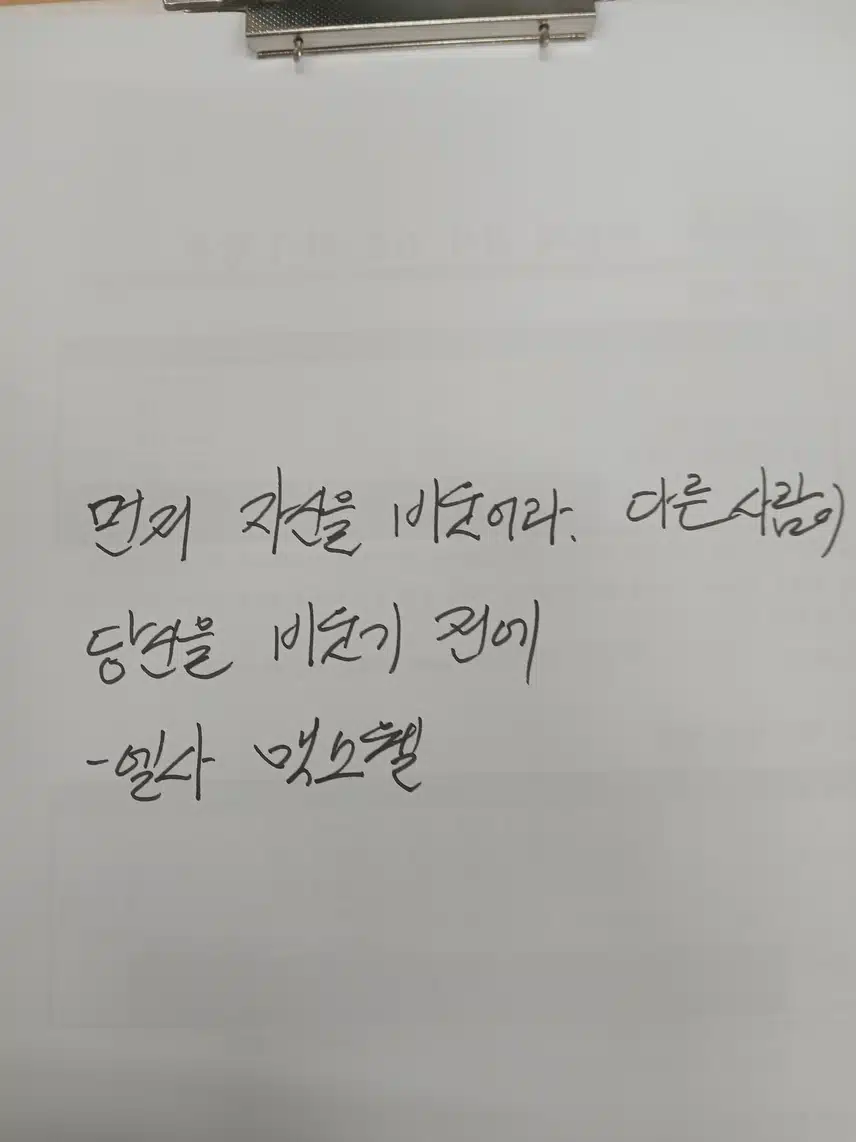 먼저 자신을 비웃어라. 다른 사람이
당신을 비웃기 전에
-엘사 맥스웰